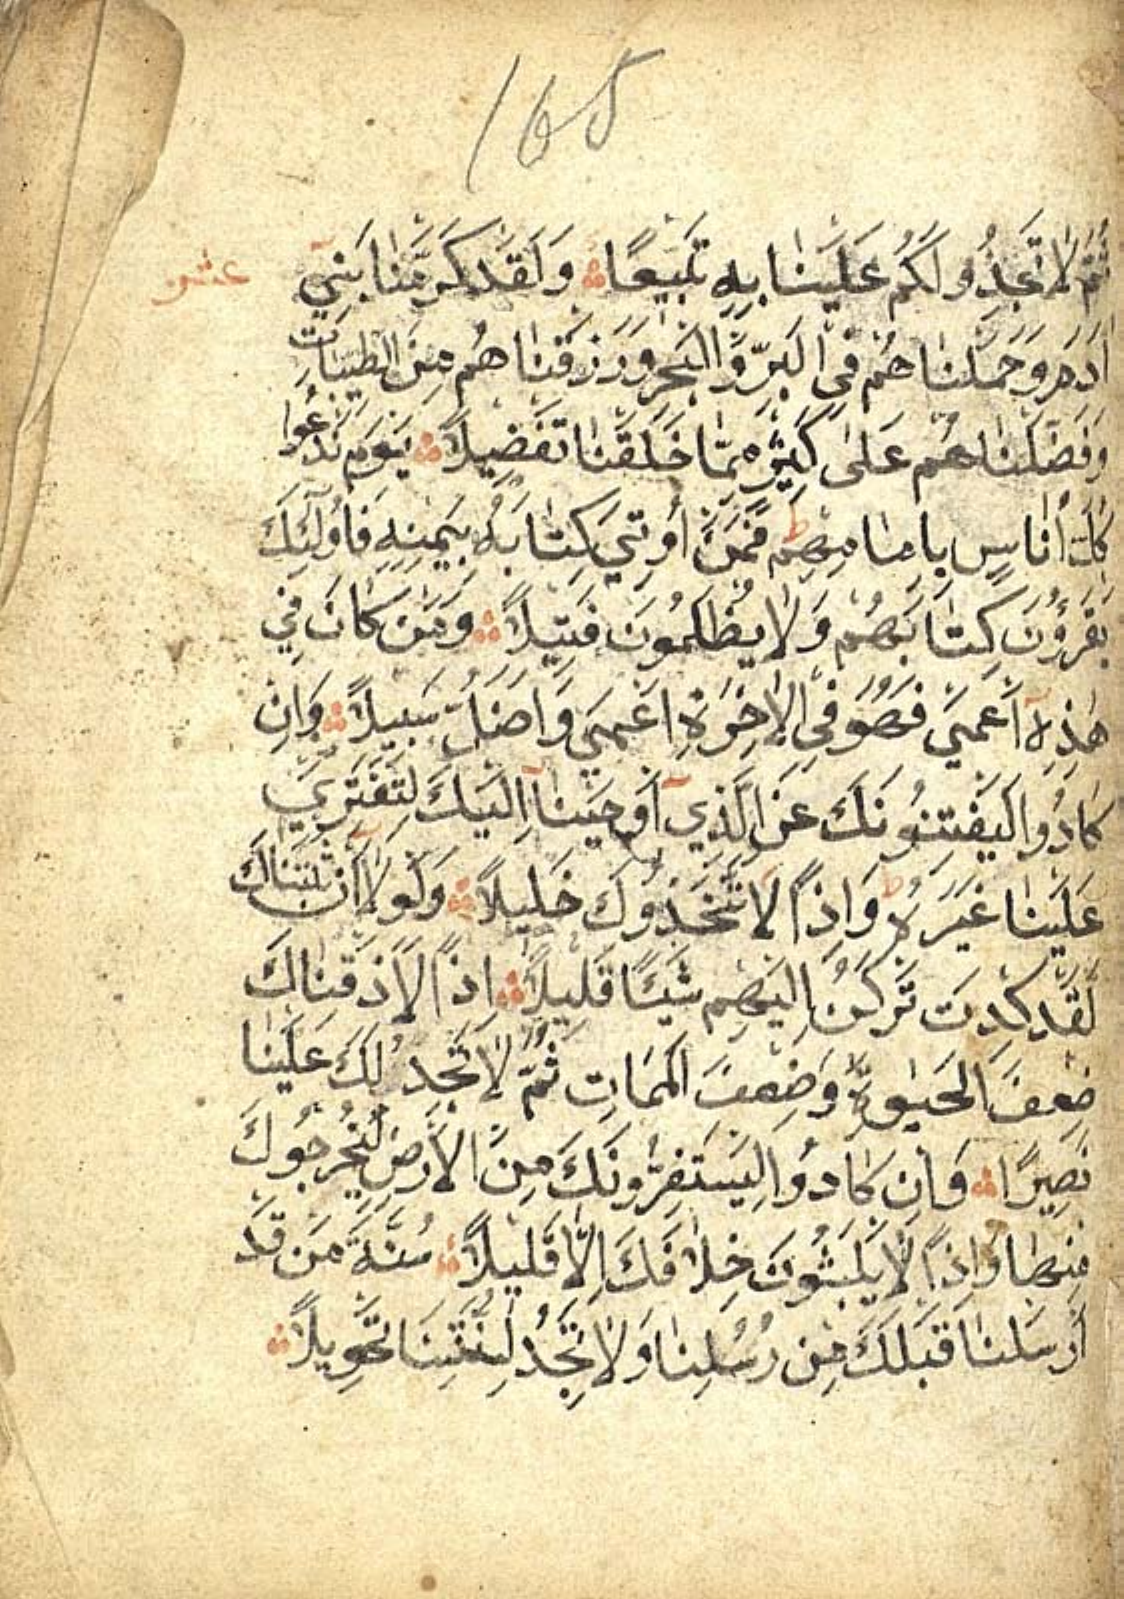 165
ثُمَّ لَا تَجِدُوا لَكُمْ عَلَيْنَا بِهِ تَبِيعًا وَلَقَدْ كَرَّمْنَا بَنِيٓ
عشر
اٰدَمَ وَحَمَلْنَاهُمْ فِي الْبَرِّ وَالْبَحْرِ وَرَزَقْنَاهُمْ مِنَ الطَّيِّبَاتِ
وَفَضَّلْنَاهُمْ عَلٰى كَثِيرٍ مِمَّا خَلَقْنَا تَفْضِيلًا يَوْمَ نَدْعُوا
كُلَّ أُنَاسٍ بِإِمَامِهِمْ ط فَمَنْ أُوتِيَ كِتَابَهُ بِيَمِينِهِ فَأُولٰٓئِكَ
يَقْرَؤُنَ كِتَابَهُمْ وَلَا يُظْلَمُونَ فَتِيلًا وَمَنْ كَانَ فِي
هٰذِهِٓ أَعْمٰى فَهُوَ فِي الْاٰخِرَةِ اَعْمٰى وَاَضَلُّ سَبِيلًا وَاِنْ
كَادُوا لَيَفْتِنُونَكَ عَنِ الَّذِيٓ أَوْحَيْنَآ اِلَيْكَ لِتَفْتَرِيَ
عَلَيْنَا غَيْرَهُ ط وَاِذًا لَاتَّخَذُوكَ خَلِيلًا وَلَوْلَآ اَنْ ثَبَّتْنَاكَ
لَقَدْ كِدْتَ تَرْكَنُ اِلَيْهِمْ شَيْئًا قَلِيلًا اِذًا لَاَذَقْنَاكَ
ضِعْفَ الْحَيٰوةِ وَضِعْفَ الْمَمَاتِ ثُمَّ لَا تَجِدُ لَكَ عَلَيْنَا
نَصِيرًا وَاِنْ كَادُوا لَيَسْتَفِزُّونَكَ مِنَ الْاَرْضِ لِيُخْرِجُوكَ
مِنْهَا وَاِذًا لَا يَلْبَثُونَ خِلَافَكَ اِلَّا قَلِيلًا سُنَّةَ مَنْ قَدْ
أَرْسَلْنَا قَبْلَكَ مِنْ رُسُلِنَا وَلَا تَجِدُ لِسُنَّتِنَا تَحْوِيلًا